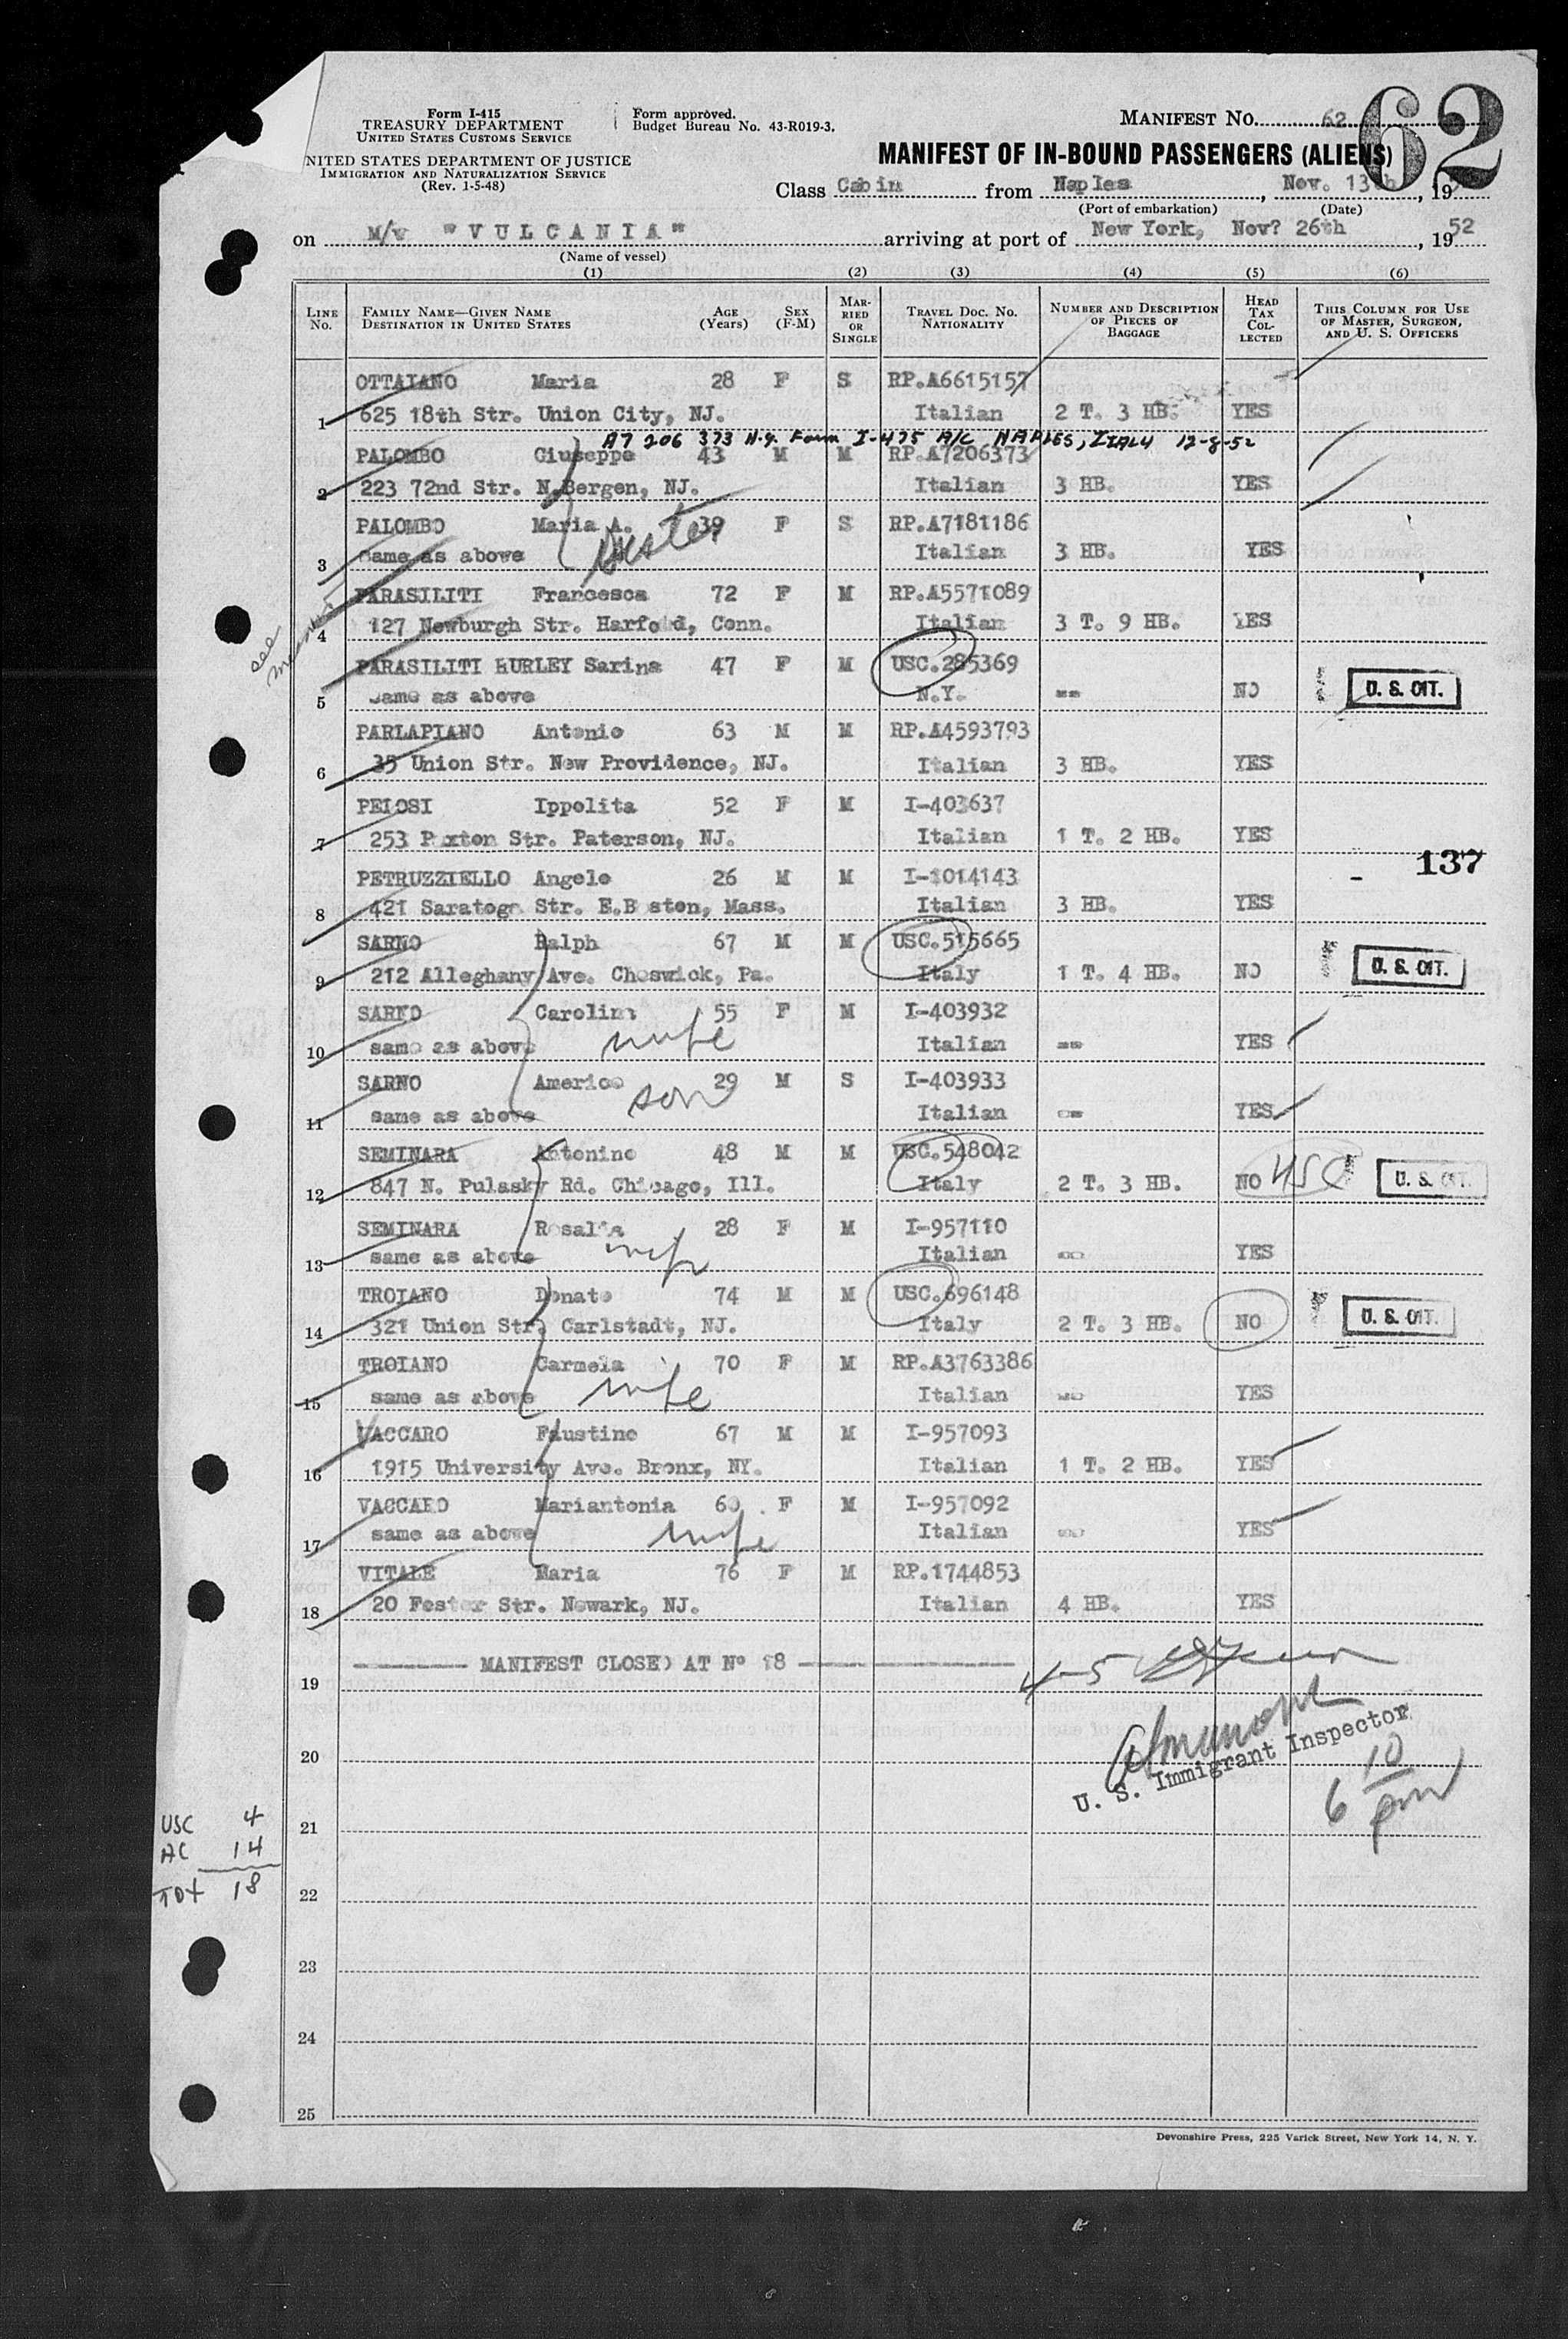 Form I-415
TREASURY DEPARTMENT
UNITED STATES CUSTOMS SERVICE
NITED STATES DEPARTMENT OF JUSTICE
IMMIGRATION AND NATURALIZATION SERVICE
(Rev. 1-5-48)
Form approved.
Budget Bureau No. 43-R019-3.
MANIFEST NO. 62
62
MANIFEST OF IN-BOUND PASSENGERS (ALIENS)
Class Cabin from Naples, Nov. 13th, 19
(Port of embarkation) (Date)
on M/v "VULCANIA" arriving at port of New York, Nov? 26th, 1952
(Name of vessel)
(1) (2) (3) (4) (5) (6)
LINE No. FAMILY NAME—GIVEN NAME DESTINATION IN UNITED STATES AGE (Years) SEX (F-M) MARRIED OR SINGLE TRAVEL DOC. NO. NATIONALITY NUMBER AND DESCRIPTION OF PIECES OF BAGGAGE HEAD TAX COLLECTED THIS COLUMN FOR USE OF MASTER, SURGEON, AND U. S. OFFICERS
OTTAIANO Maria 28 F S RP.A6615157
1 625 18th Str. Union City, NJ. Italian 2 T. 3 HB. YES
A7 206 373 N.Y. Form I-475 A/C NAPLES, ITALY 12-8-52
PALOMBO Giuseppe 43 M M RP.A7206373
2 223 72nd Str. N.Bergen, NJ. Italian 3 HB. YES
PALOMBO Maria A. 39 F S RP.A7181186
sister
3 same as above Italian 3 HB. YES
PARASILITI Francesca 72 F M RP.A5571089
4 127 Newburgh Str. Harford, Conn. Italian 3 T. 9 HB. YES
see
PARASILITI HURLEY Sarina 47 F M USC.285369
5 same as above N.Y. -- NO U. S. CIT.
PARLAPIANO Antonio 63 M M RP.A4593793
6 35 Union Str. New Providence, NJ. Italian 3 HB. YES
PELOSI Ippolita 52 F M I-403637
7 253 Paxton Str. Paterson, NJ. Italian 1 T. 2 HB. YES
137
PETRUZZIELLO Angelo 26 M M I-1014143
8 421 Saratoga Str. E.Boston, Mass. Italian 3 HB. YES
SARNO Ralph 67 M M USC.515665
9 212 Alleghany Ave. Cheswick, Pa. Italy 1 T. 4 HB. NO U. S. CIT.
SARNO Carolina 55 F M I-403932
10 same as above wife Italian -- YES
SARNO Americo 29 M S I-403933
11 same as above son Italian -- YES
SEMINARA Antonino 48 M M USC.548042
12 847 N. Pulasky Rd. Chicago, Ill. Italy 2 T. 3 HB. NO USC U. S. CIT.
SEMINARA Rosalia 28 F M I-957110
13 same as above wife Italian -- YES
TROIANO Donato 74 M M USC.696148
14 321 Union Str. Carlstadt, NJ. Italy 2 T. 3 HB. NO U. S. CIT.
TROIANO Carmela 70 F M RP.A3763386
15 same as above wife Italian -- YES
VACCARO Faustino 67 M M I-957093
16 1915 University Ave. Bronx, NY. Italian 1 T. 2 HB. YES
VACCARO Mariantonia 60 F M I-957092
17 same as above wife Italian -- YES
VITALE Maria 76 F M RP.1744853
18 20 Fester Str. Newark, NJ. Italian 4 HB. YES
19 MANIFEST CLOSED AT No 18
4-5
U. S. Immigrant Inspector
6 10 pm
20
21
USC 4
AC 14
TOT 18
22
23
24
25
Devonshire Press, 225 Varick Street, New York 14, N. Y.